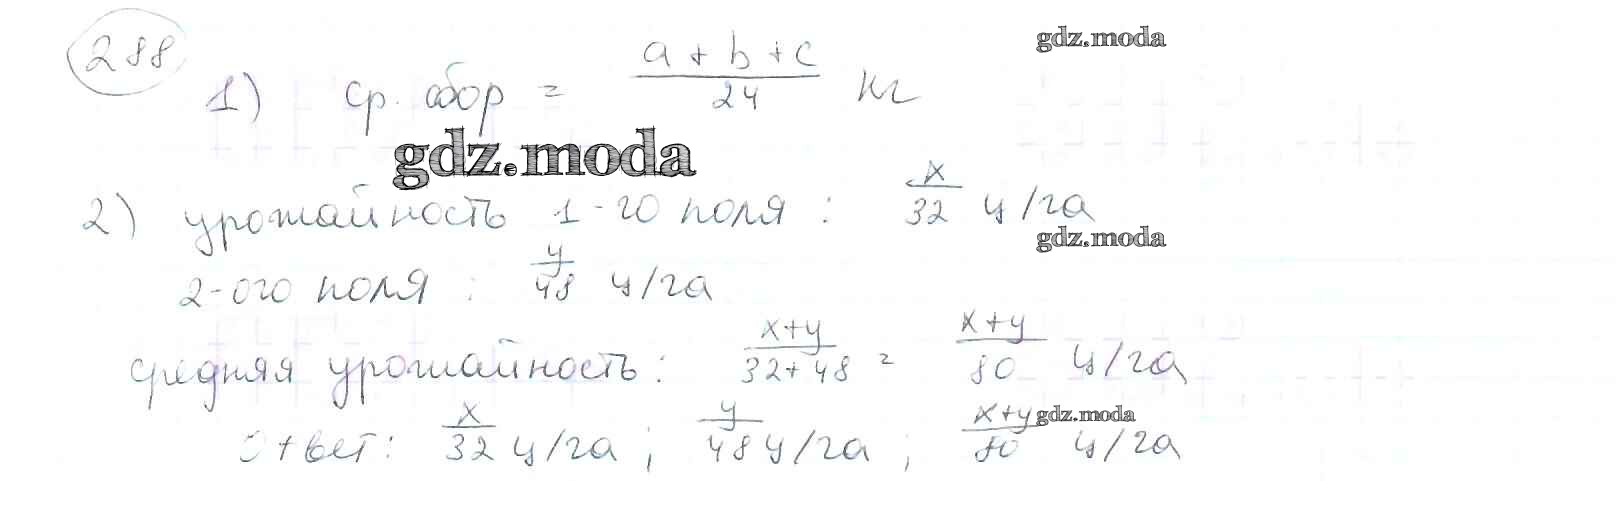 288
1) ср. сбор = (a + b + c)/24 кг
gdz.moda
gdz.moda
2) урожайность 1-го поля : x/32 ц/га
gdz.moda
2-ого поля : y/48 ц/га
средняя урожайность : (x+y)/(32+48) = (x+y)/80 ц/га
Ответ: x/32 ц/га ; y/48 ц/га ; (x+y)/80 ц/га
gdz.moda